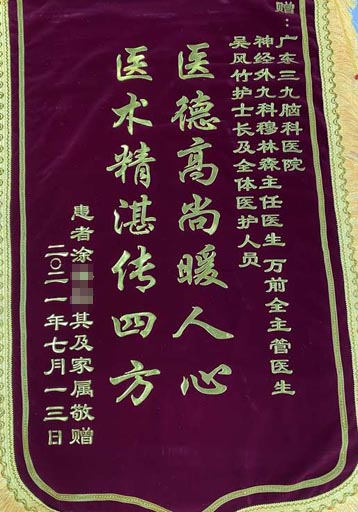 赠：广东三九脑科医院
神经外九科穆林森主任医生 万前全主管医生
吴风竹护士长及全体医护人员
医德高尚暖人心
医术精湛传四方
患者涂 其及家属敬赠
二〇二一年七月一三日